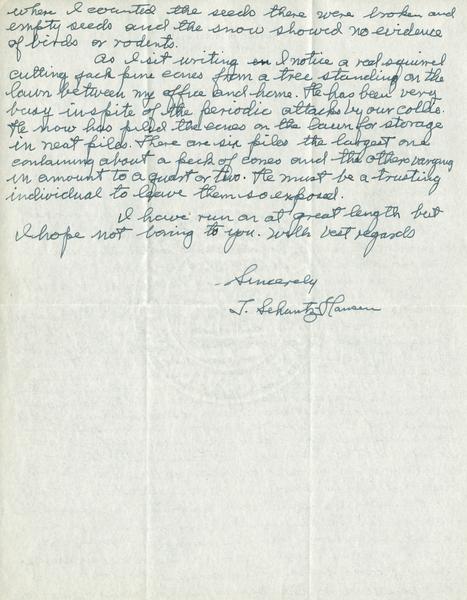 when I counted the seeds there were broken and
empty seeds and the snow showed no evidence
of birds or rodents.
As I sit writing I notice a red squirrel
cutting jack pine cones from a tree standing on the
lawn between my office and home. He has been very
busy inspite of the periodic attacks by our collie.
He now has piled the cones on the lawn for storage
in neat piles. There are six piles the largest one
containing about a peck of cones and the others varying
in amount to a quart or two. He must be a trusting
individual to leave them so exposed.
I have run on at great length but
I hope not boring to you. With best regards
Sincerely
T. Schantz-Hansen